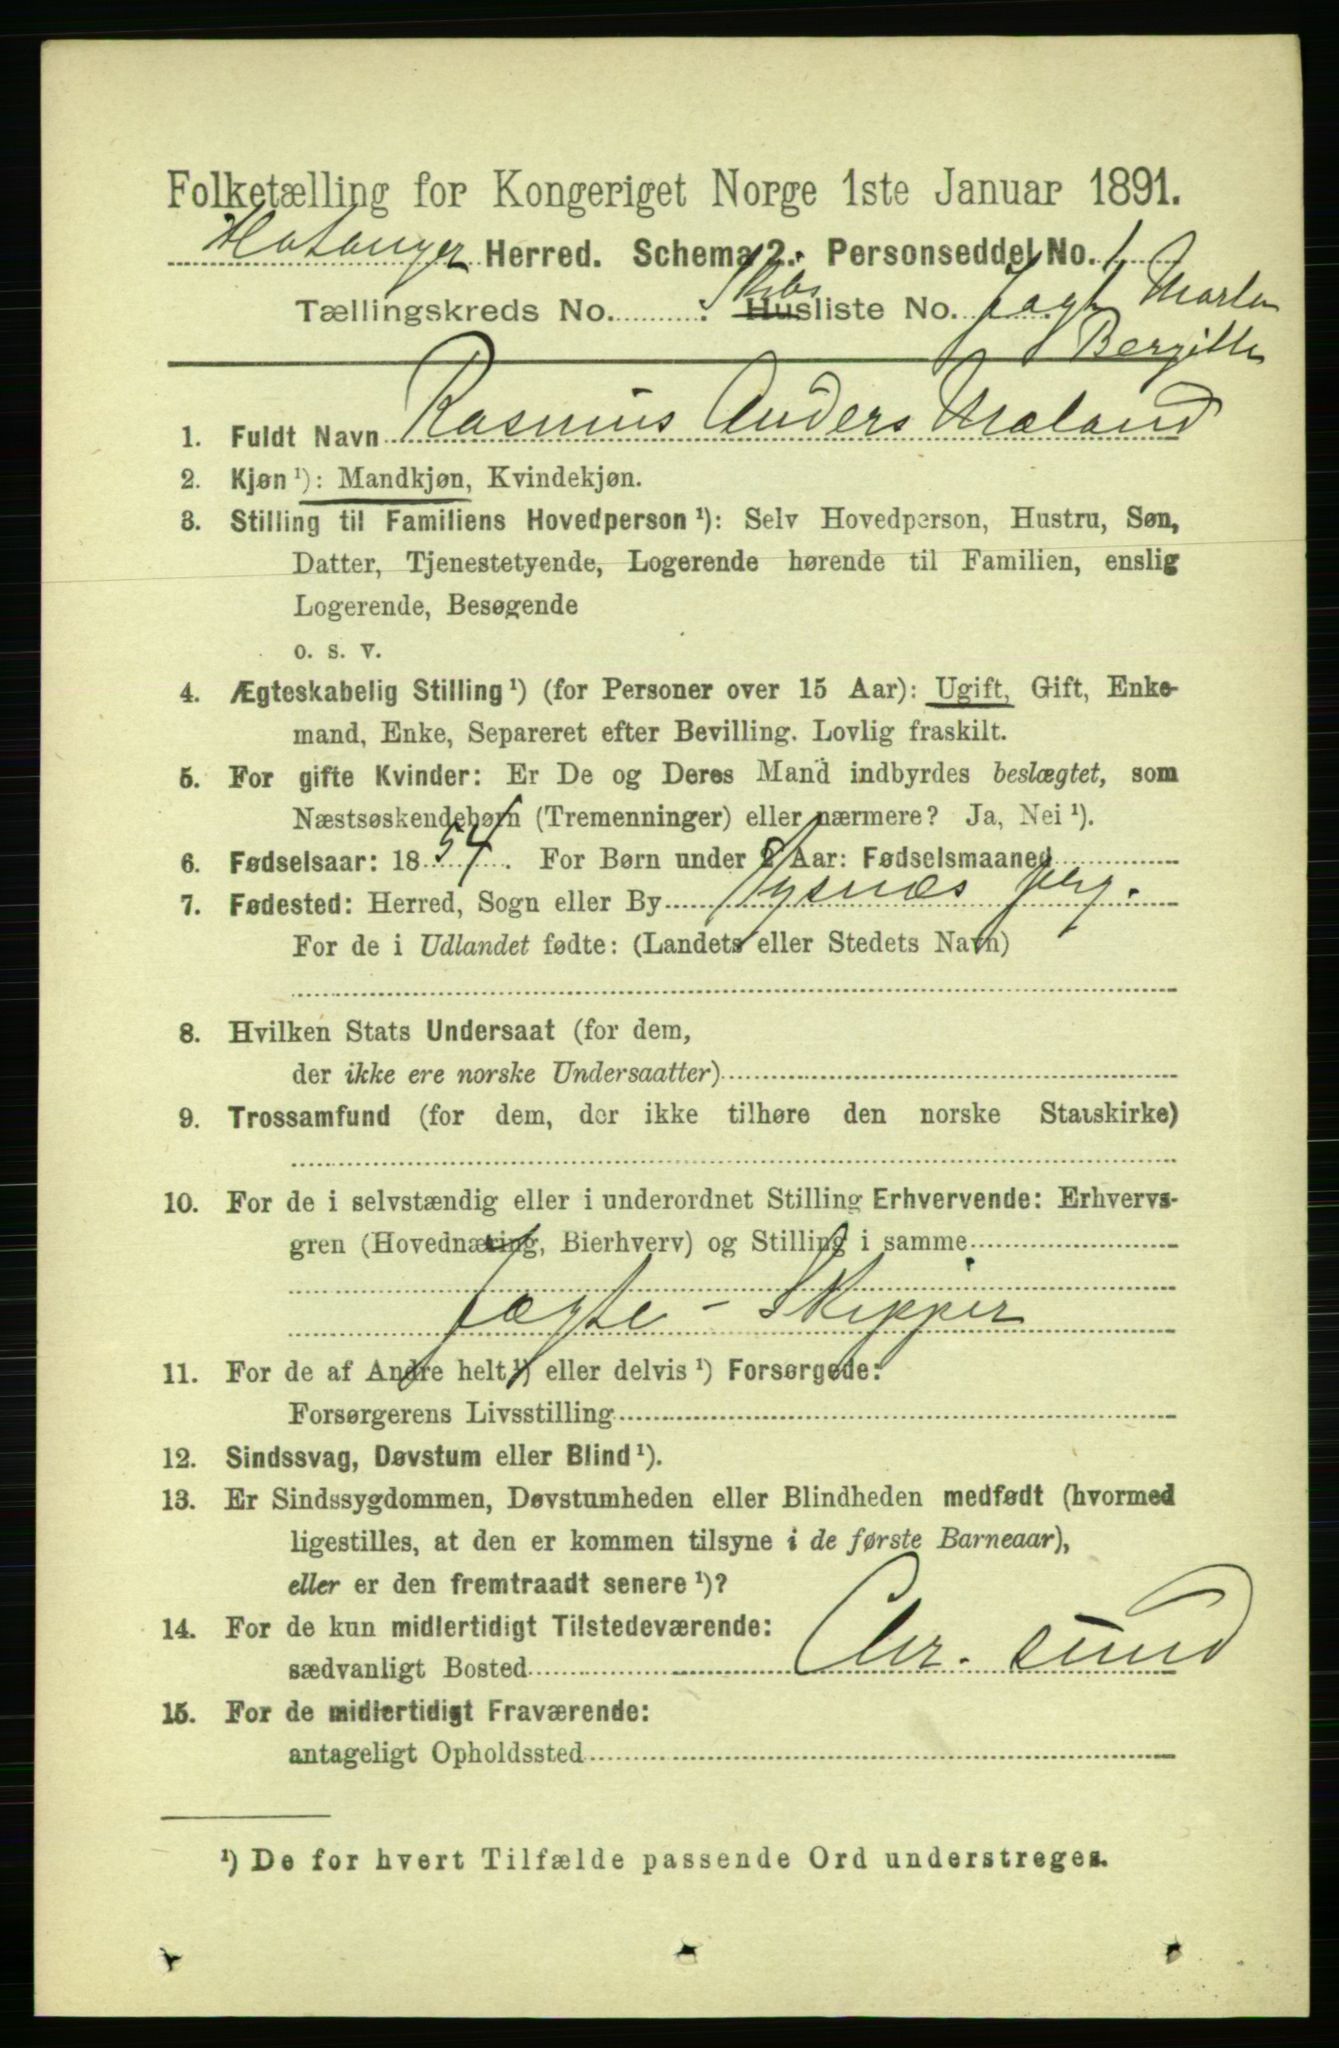 Folketælling for Kongeriget Norge 1ste Januar 1891.
Herred. Schema 2. Personseddel No. 1
Tællingskreds No. . Skibs Husliste No. Jagt Marta
Bergitta
1. Fuldt Navn Rasmus Anders Mæland
2. Kjøn ¹): Mandkjøn, Kvindekjøn.
3. Stilling til Familiens Hovedperson ¹): Selv Hovedperson, Hustru, Søn,
Datter, Tjenestetyende, Logerende hørende til Familien, enslig
Logerende, Besøgende
o. s. v.
4. Ægteskabelig Stilling ¹) (for Personer over 15 Aar): Ugift, Gift, Enke-
mand, Enke, Separeret efter Bevilling. Lovlig fraskilt.
5. For gifte Kvinder: Er De og Deres Mand indbyrdes beslægtet, som
Næstsøskendebørn (Tremenninger) eller nærmere? Ja, Nei ¹).
6. Fødselsaar: 18 54. For Børn under 2 Aar: Fødselsmaaned
7. Fødested: Herred, Sogn eller By Tysnæs prg.
For de i Udlandet fødte: (Landets eller Stedets Navn)
8. Hvilken Stats Undersaat (for dem,
der ikke ere norske Undersaatter)
9. Trossamfund (for dem, der ikke tilhøre den norske Statskirke)
10. For de i selvstændig eller i underordnet Stilling Erhvervende: Erhvervs-
gren (Hovednæring, Bierhverv) og Stilling i samme
Jagte-Skipper
11. For de af Andre helt ¹) eller delvis ¹) Forsørgede:
Forsørgerens Livsstilling
12. Sindssvag, Døvstum eller Blind ¹).
13. Er Sindssygdommen, Døvstumheden eller Blindheden medfødt (hvormed
ligestilles, at den er kommen tilsyne i de første Barneaar),
eller er den fremtraadt senere ¹)?
14. For de kun midlertidigt Tilstedeværende:
sædvanligt Bosted Chr. sund
15. For de midlertidigt Fraværende:
antageligt Opholdssted
¹) De for hvert Tilfælde passende Ord understreges.